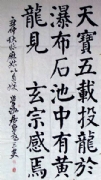 天寶五載投龍於
瀑布石池中有黃
龍見　玄宗感焉